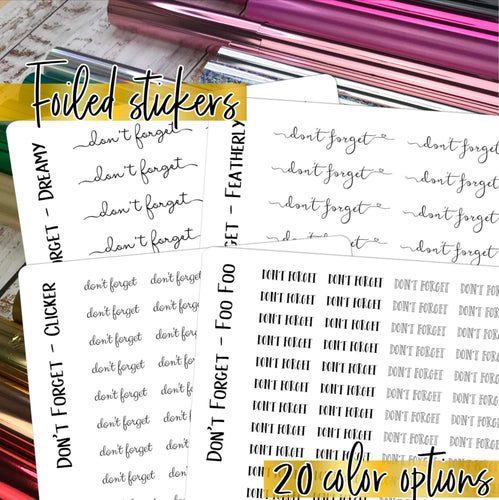 Foiled stickers
GET - DREAMY
don't forget
don't forget
don't forget
don't forget
GET - FEATHERLY
don't forget don't forget
don't forget don't forget
don't forget don't forget
don't forget don't forget
DON'T FORGET - CLICKER
don't forget don't forget
don't forget don't forget
don't forget don't forget
don't forget don't forget
don't forget don't forget
don't forget don't forget
don't forget don't forget
don't forget don't forget
DON'T FORGET - FOO FOO
DON'T FORGET DON'T FORGET DON'T FORGET DON'T
DON'T FORGET DON'T FORGET DON'T FORGET DON'T
DON'T FORGET DON'T FORGET DON'T FORGET DON'T
DON'T FORGET DON'T FORGET DON'T FORGET DON'T
DON'T FORGET DON'T FORGET DON'T FORGET DON'T
DON'T FORGET DON'T FORGET DON'T FORGET DON'T
DON'T FORGET DON'T FORGET DON'T FORGET DON'T
DON'T FORGET DON'T FORGET DON'T FORGET DON'T
DON'T FORGET DON'T FORGET
20 color options